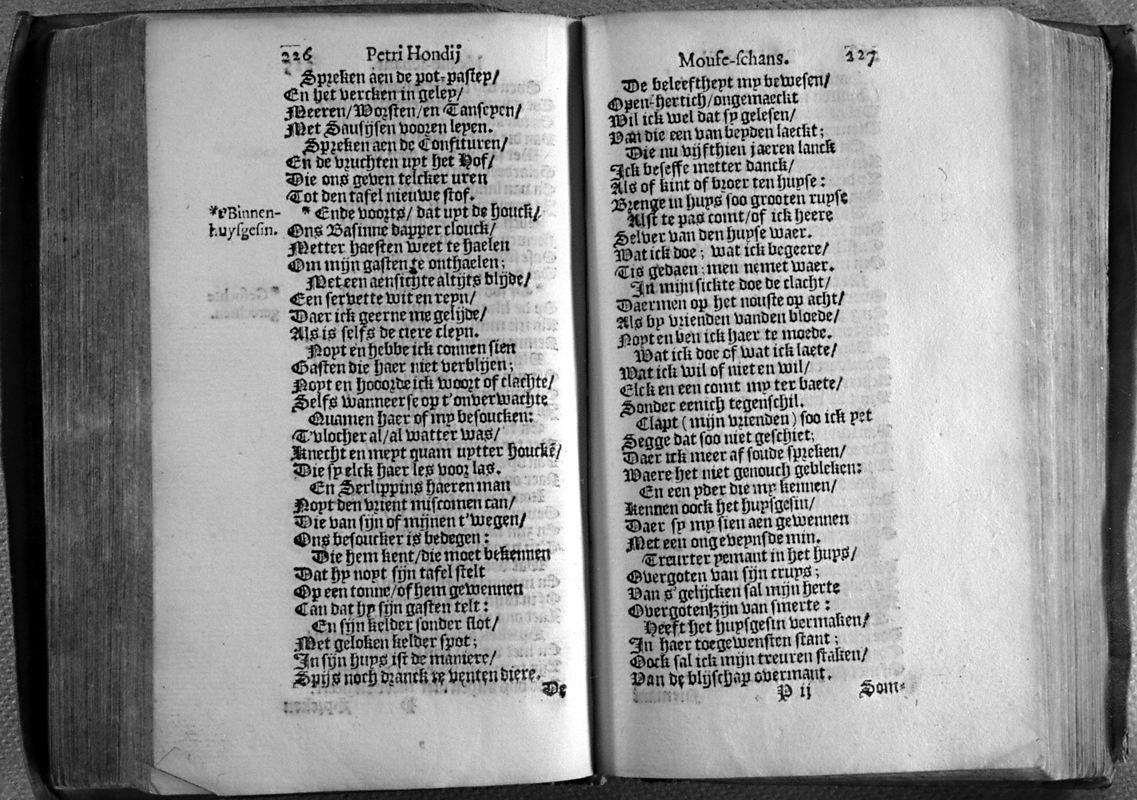 226 Petri Hondij
Spreken aen de pot-pastey/
En het vercken in geley/
Meeren/Worsten/en Tanseyen/
Met Sausijsen vooren leyen.
Spreken aen de Confituren/
En de vruchten uyt het Hof/
Die ons geven telcker uren
Tot den tafel nieuwe stof.
*'tBinnen-
huysgesin.
* Ende voorts/ dat uyt de houck/
Ons Basinne dapper clouck/
Metter haesten weet te haelen
Om mijn gasten te onthaelen;
Met een aensichte altijts blijde/
Een servette wit en reyn/
Daer ick geerne me gelijde/
Als is selfs de ciere cleyn.
Noyt en hebbe ick connen sien
Gasten die haer niet verblijen;
Noyt en hooorde ick woort of clachte/
Selfs wanneerse op t'onverwachte
Quamen haer of my besoucken:
T'vlocher al/al watter was/
Knecht en meyt quam uytter houckē/
Die sy elck haer les voor las.
En Serlippins haeren man
Noyt den vrient miscomen can/
Die van sijn of mijnen t'wegen/
Ons besoucker is bedegen:
Die hem kent/die moet bekennen
Dat hy noyt sijn tafel stelt
Op een tonne/of hem gewennen
Can dat hy sijn gasten telt:
En sijn kelder sonder slot/
Met geloken kelder spot;
In sijn huys ist de maniere/
Spijs noch dranck te venten diere.
De
Mouse-schans. 227
De beleeftheyt my bewesen/
Open-hertich/ongemaeckt
Wil ick wel dat sy gelesen/
Van die een van beyden laeckt;
Die nu vijfthien jaeren lanck
Ick beseffe metter danck/
Als of kint of broer ten huyse:
Brenge in huys soo grooten ruyse
Alst te pas comt/of ick heere
Selver van den huyse waer.
Wat ick doe; wat ick begeere/
Tis gedaen: men nemet waer.
In mijn sickte doe de clacht/
Daermen op het nouste op acht/
Als by vrienden vanden bloede/
Noyt en ben ick haer te moede.
Wat ick doe of wat ick laete/
Wat ick wil of niet en wil/
Elck en een comt my ter baete/
Sonder eenich tegenschil.
Clapt (mijn vrienden) soo ick yet
Segge dat soo niet geschiet;
Daer ick meer af soude spreken/
Waere het niet genouch gebleken:
En een yder die my kennen/
Kennen oock het huysgesin/
Daer sy my sien aen gewennen
Met een ongeveynsde min.
Treurter yemant in het huys/
Overgoten van sijn cruys;
Van s'gelijcken sal mijn herte
Overgoten zijn van smerte:
Heeft het huysgesin vermaken/
In haer toegewensten stant;
Oock sal ick mijn treuren staken/
Van de blijschap overmant.
P ij Som-